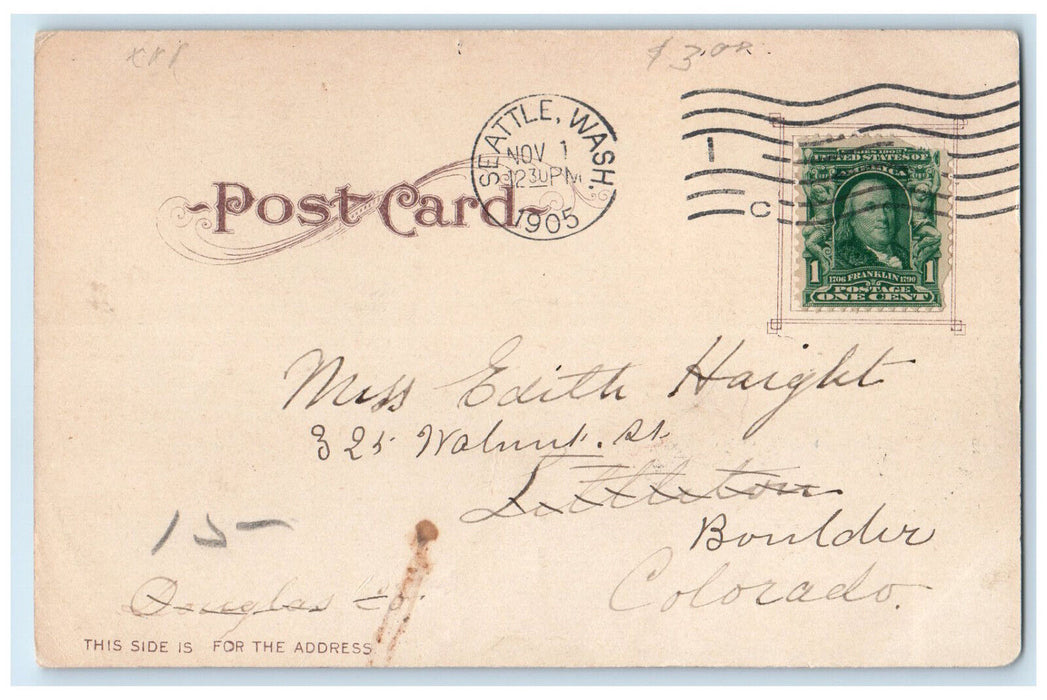 $3.00
SEATTLE, WASH.
NOV 1
12 30 PM
1905
1
C
Post Card
SERIES 1902
UNITED STATES OF
AMERICA
1 1706 FRANKLIN 1790 1
POSTAGE
ONE CENT
Miss Edith Haight
325 Walnut. St
Littleton
Boulder
15-
Colorado.
Douglas Co.
THIS SIDE IS FOR THE ADDRESS